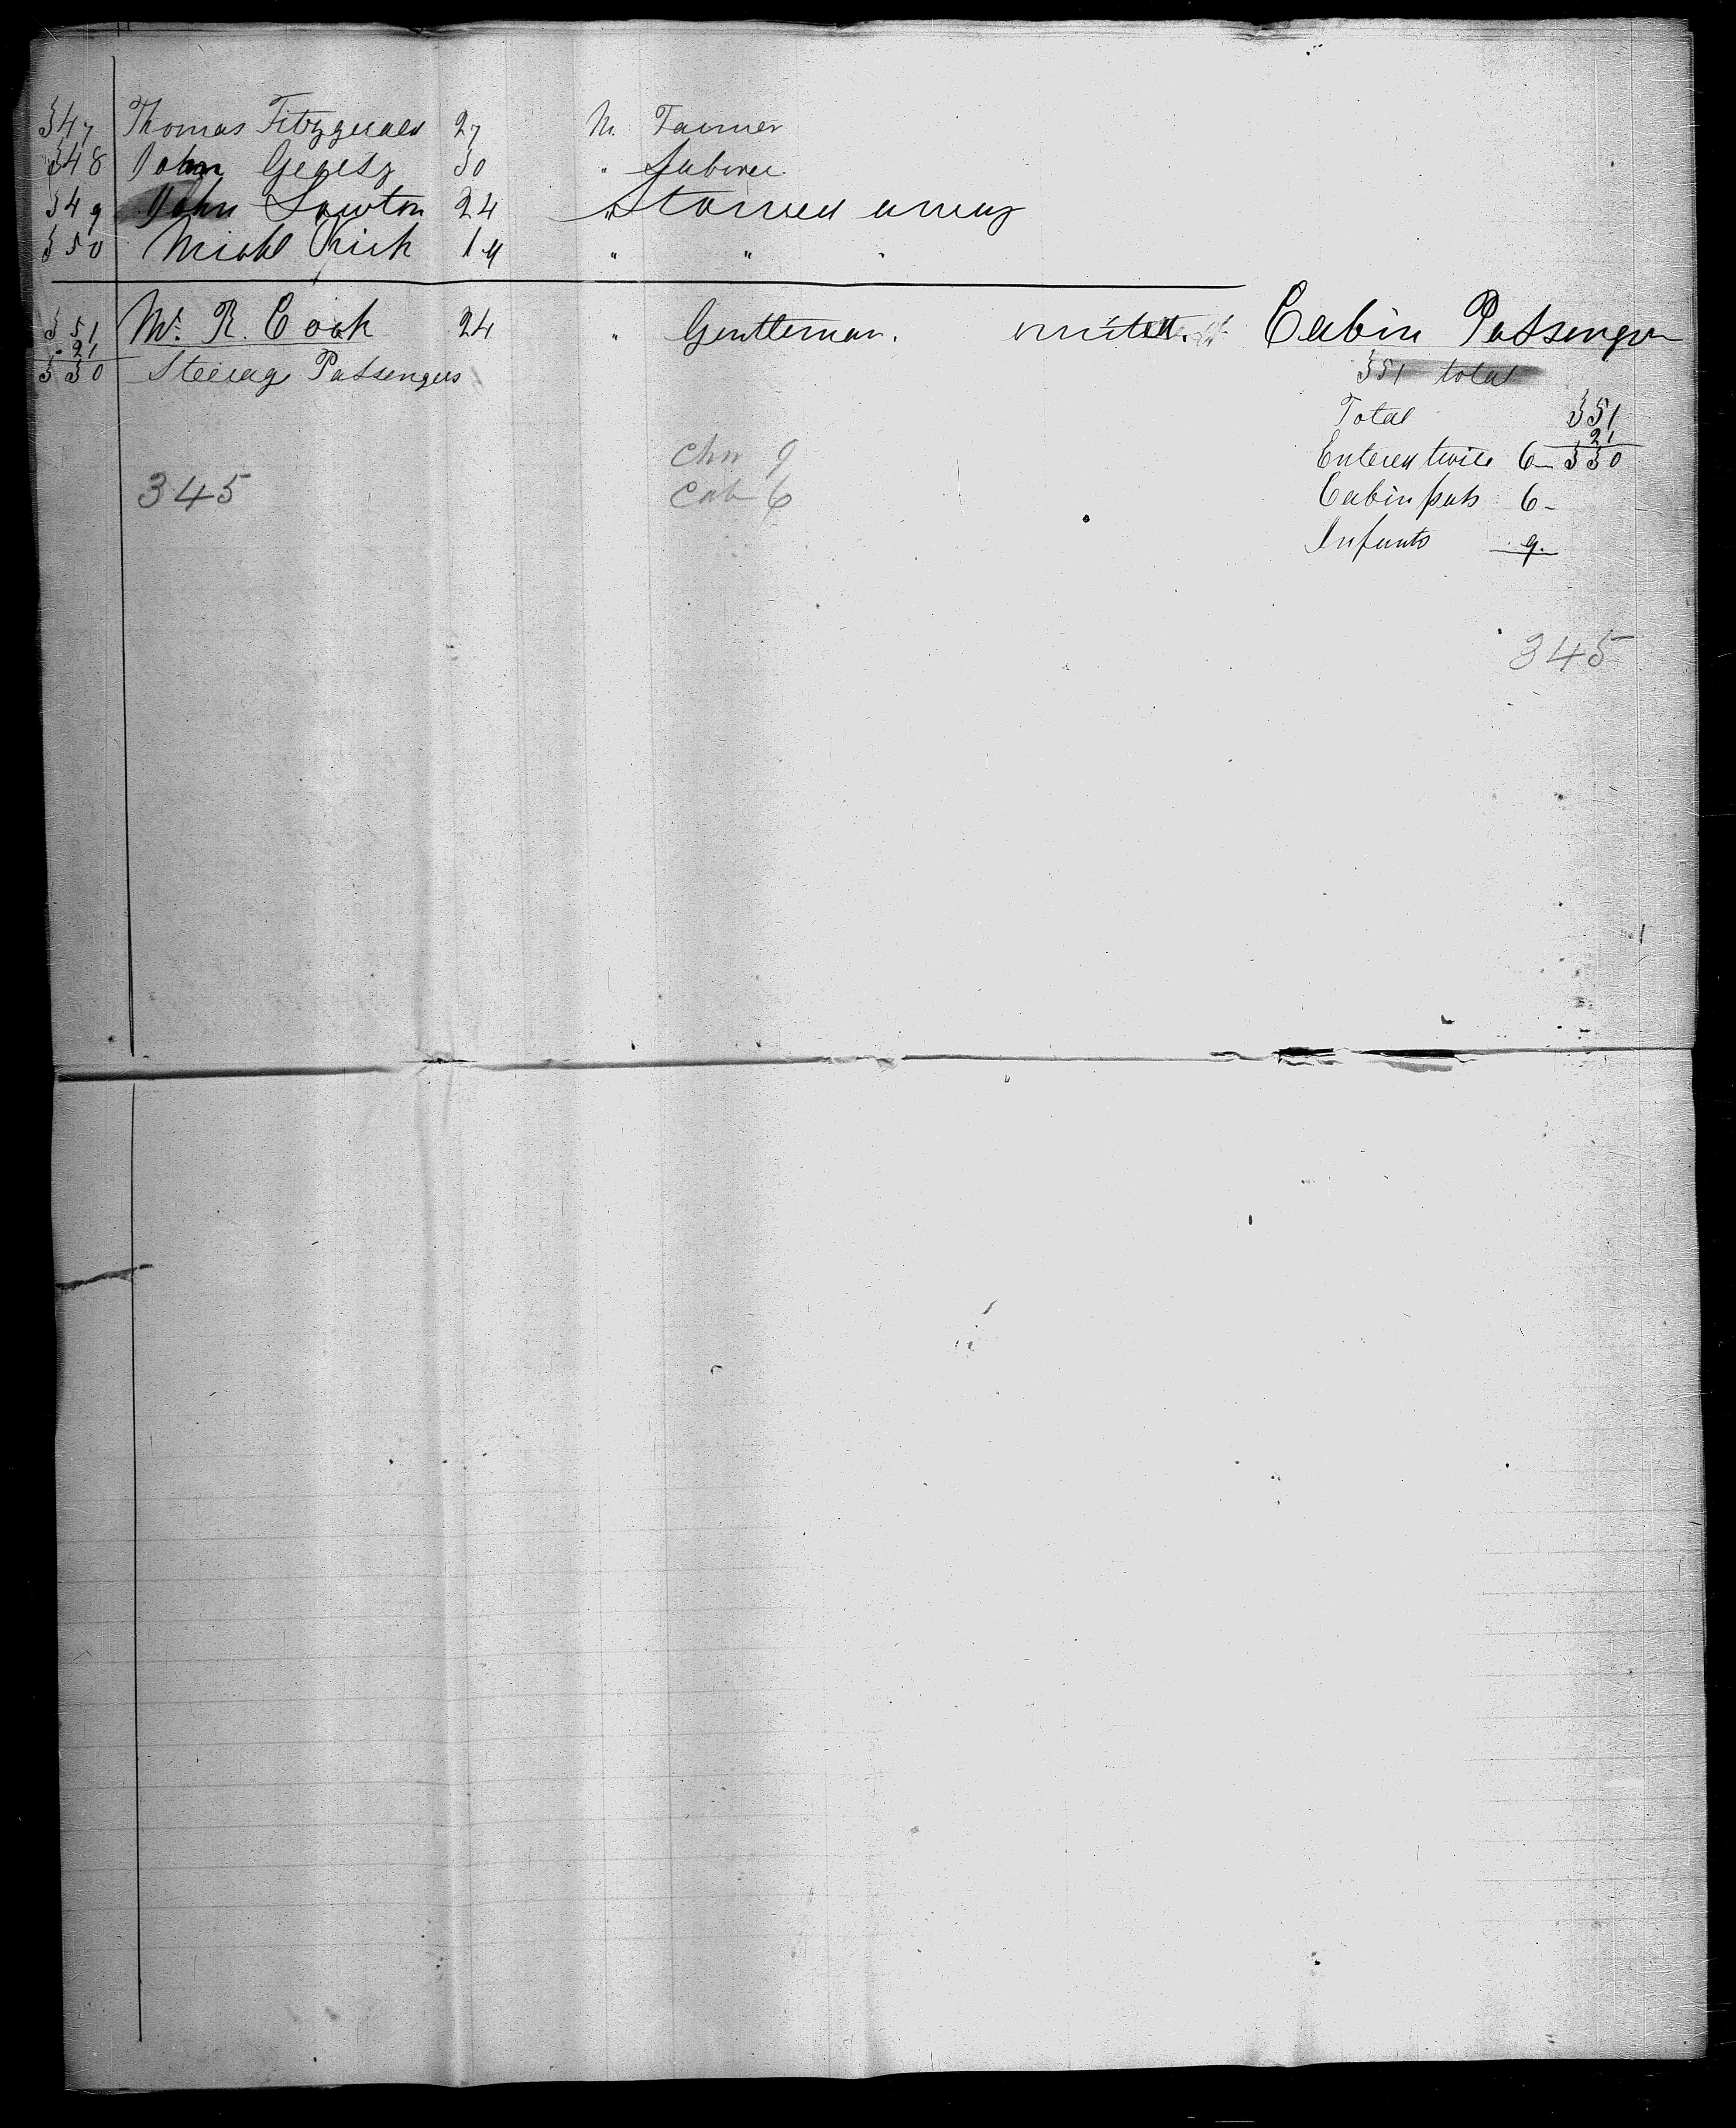 347 Thomas Fitzgerald 27 M. Farmer
348 John 30 " Laborer
349 John Lawton 24 " Stowed away
350 Michl 19 " " "
351 Mr. R. Cook 24 " Gentleman. omitted. Cabin Passenger
21
330 Steerage Passengers
351 total
Total 351
21
Entered twice 6 — 330
Cabin pass 6 -
Infants 9.
chn 9
345 Cab 6
345